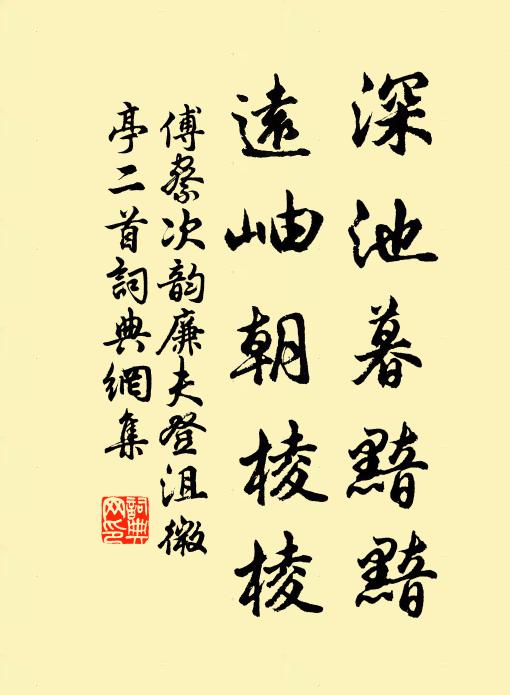 深池暮黯黯
遠岫朝棱棱
傅察次韵廉夫登沮微
亭二首詞典網集
詞典
网印